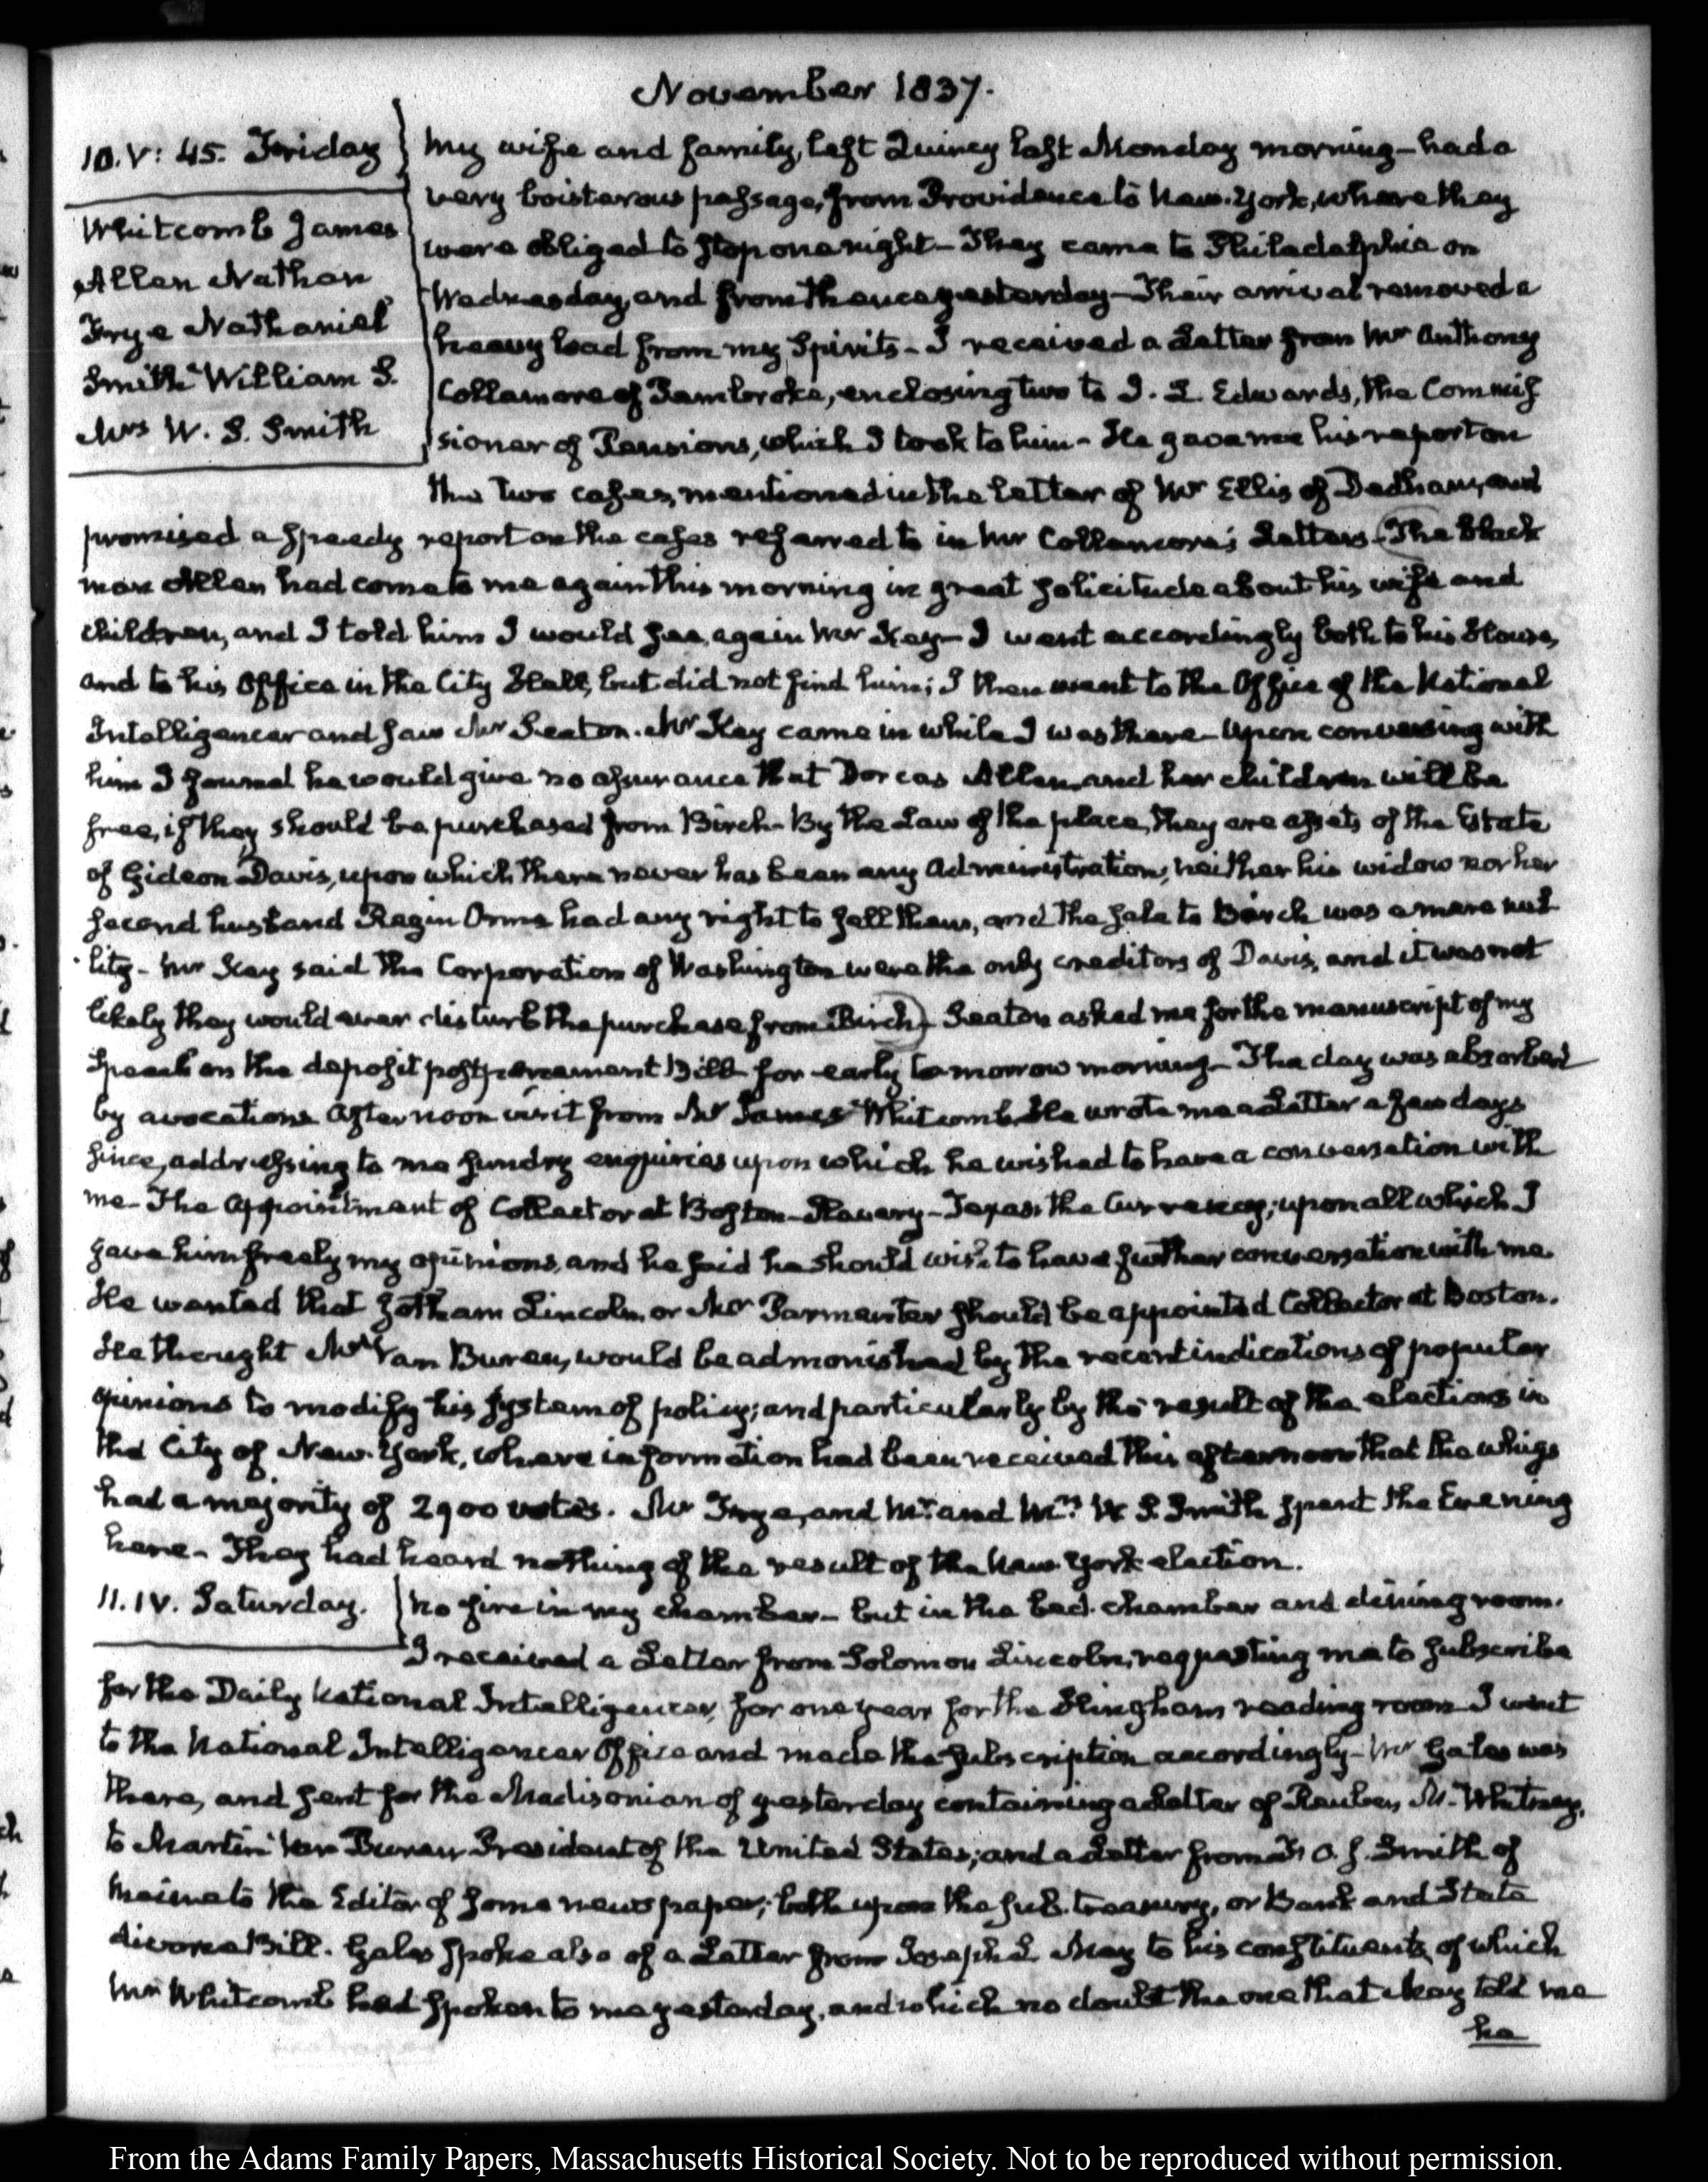 November 1837.
10. V: 45. Friday
Whitcomb James
Allen Nathan
Frye Nathaniel
Smith William S.
Mrs W. S. Smith
My wife and family, left Quincy last Monday morning – had a
very boisterous passage, from Providence to New-York, where they
were obliged to stop one night – They came to Philadelphia on
Wednesday, and from thence yesterday – Their arrival removed a
heavy load from my Spirits – I received a Letter from Mr Anthony
Collamore of Pembroke, enclosing two to J. L. Edwards, the Commis
sioner of Pensions, which I took to him – He gave me his report on
the two cases, mentioned in the Letter of Mr Ellis of Dedham, and
promised a speedy report on the cases referred to in Mr Collamore's Letters – The black
man Allen had come to me again this morning in great solicitude about his wife and
children, and I told him I would see again Mr Key – I went accordingly both to his House,
and to his Office in the City Hall, but did not find him; I then went to the Office of the National
Intelligencer and saw Mr Seaton. Mr Key came in while I was there – Upon conversing with
him I found he would give no assurance that Dorcas Allen, and her children will be
free, if they should be purchased from Birch – By the Law of the place, they are assets of the Estate
of Gideon Davis, upon which there never has been any Administration; neither his widow nor her
second husband Rezin Orme had any right to sell them, and the sale to Birch was a mere nul
lity – Mr Key said the Corporation of Washington were the only creditors of Davis, and it was not
likely they would ever disturb the purchase from Birch – Seaton asked me for the manuscript of my
Speech on the deposit postponement Bill for early tomorrow morning – The day was absorbed
by avocations Afternoon visit from Mr James Whitcomb. He wrote me a Letter a few days
since, addressing to me sundry enquiries upon which he wished to have a conversation with
me – The Appointment of Collector at Boston – Slavery – Texas, the Currency; upon all which I
gave him freely my opinions, and he said he should wish to have further conversation with me.
He wanted that Gotham Lincoln, or Mr Parmenter should be appointed Collector at Boston.
He thought Mr Van Buren, would be admonished by the recent indications of popular
opinions to modify his system of policy; and particularly by the result of the elections in
the City of New-York, where information had been received this afternoon that the whigs
had a majority of 2900 votes. Mr Frye, and Mr and Mrs W. S. Smith spent the Evening
here – They had heard nothing of the result of the New-York election.
11. IV. Saturday.
No fire in my chamber – but in the bed-chamber and dining room.
I received a Letter from Solomon Lincoln, requesting me to subscribe
for the Daily National Intelligencer, for one year for the Hingham reading room I went
to the National Intelligencer Office and made the subscription accordingly – Mr Gales was
there, and sent for the Madisonian of yesterday containing a Letter of Reuben M. Whitney,
to Martin Van Buren President of the United States; and a Letter from F. O. J. Smith of
Maine to the Editor of some newspaper; both upon the sub-treasury, or Bank and State
divorce Bill. Gales spoke also of a Letter from Joseph L May to his constituents, of which
Mr Whitcomb had spoken to me yesterday, and which no doubt the one that May told me
he
From the Adams Family Papers, Massachusetts Historical Society. Not to be reproduced without permission.